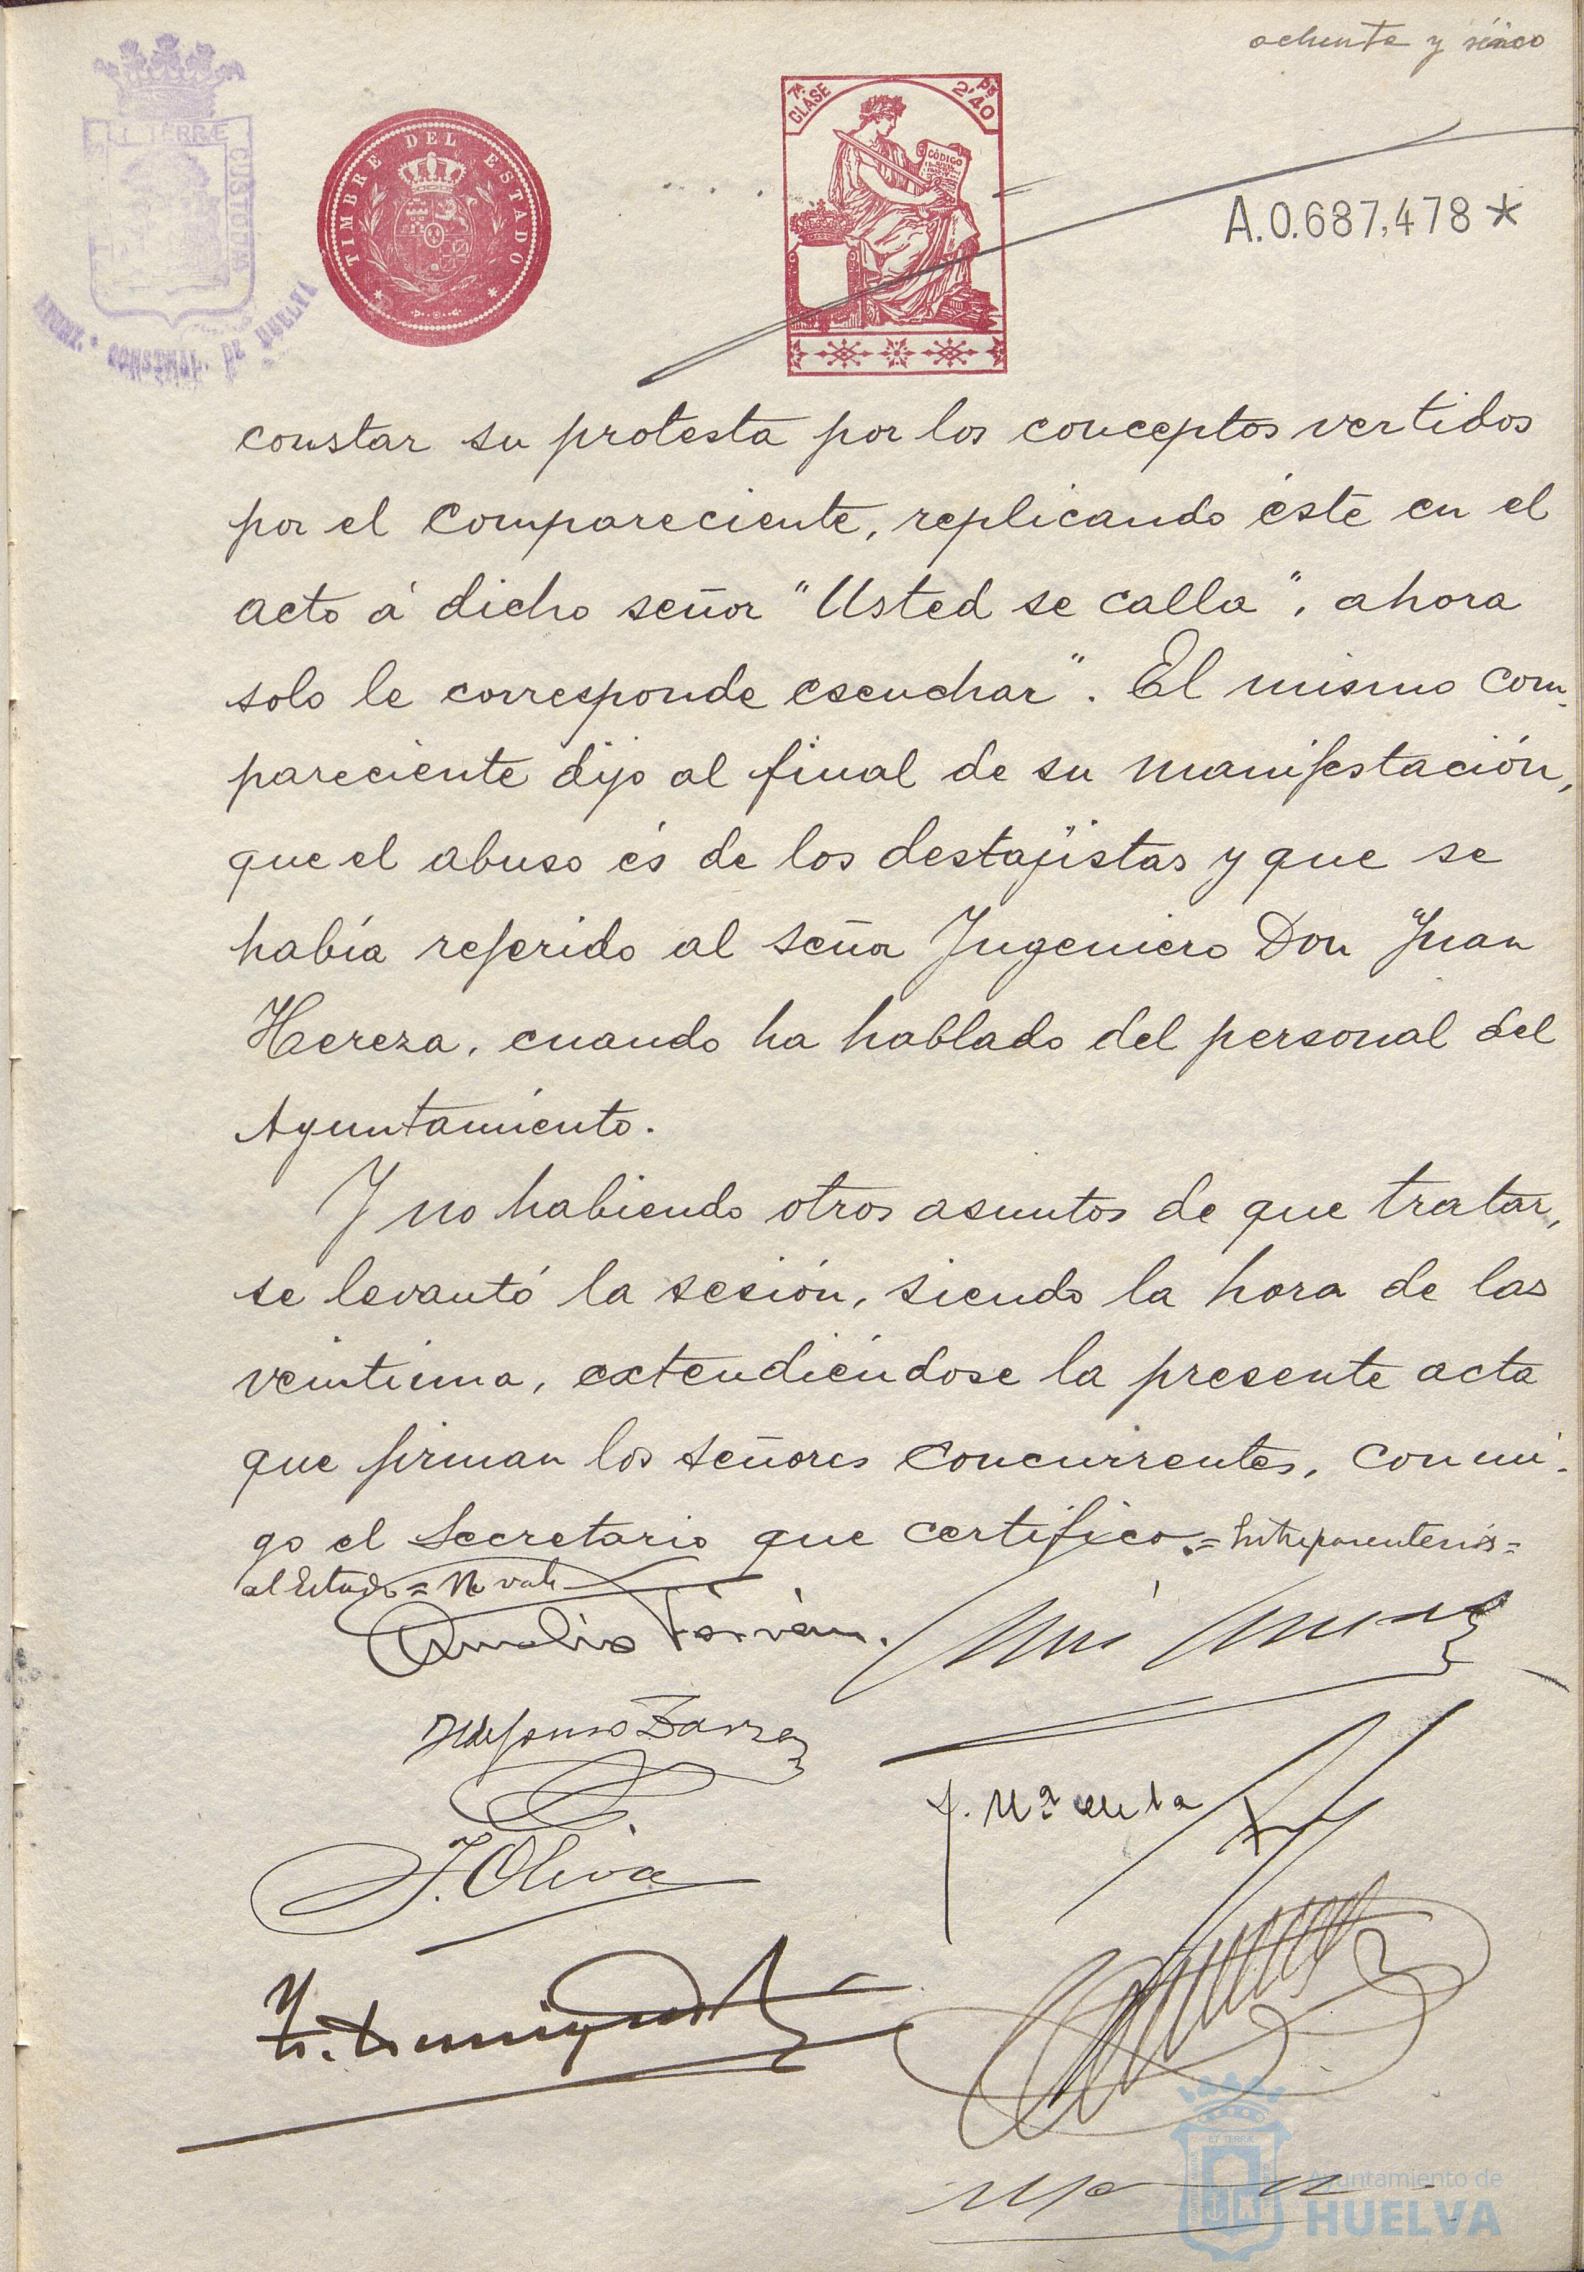 ochenta y cinco
ET TERRÆ
CUSTODIA
AYUNT. CONSTNAL. DE HUELVA
TIMBRE DEL ESTADO
7ª CLASE
2'40 Pts
CÓDIGO
A.0.687,478*
constar su protesta por los conceptos vertidos
por el compareciente, replicando éste en el
acto á dicho señor "Usted se calla", ahora
solo le corresponde escuchar". El mismo com-
pareciente dijo al final de su manifestación,
que el abuso és de los destajistas y que se
había referido al señor Ingeniero Don Juan
Hereza, cuando ha hablado del personal del
Ayuntamiento.
Y no habiendo otros asuntos de que tratar,
se levantó la sesión, siendo la hora de las
veintiuna, extendiéndose la presente acta
que firman los señores concurrentes, conmi-
go el Secretario que certifico.=Entreparentesis=
al Estado=No vale
Ildefonso
J. Oliva
J. Mª
ET TERRÆ
Ayuntamiento de
HUELVA